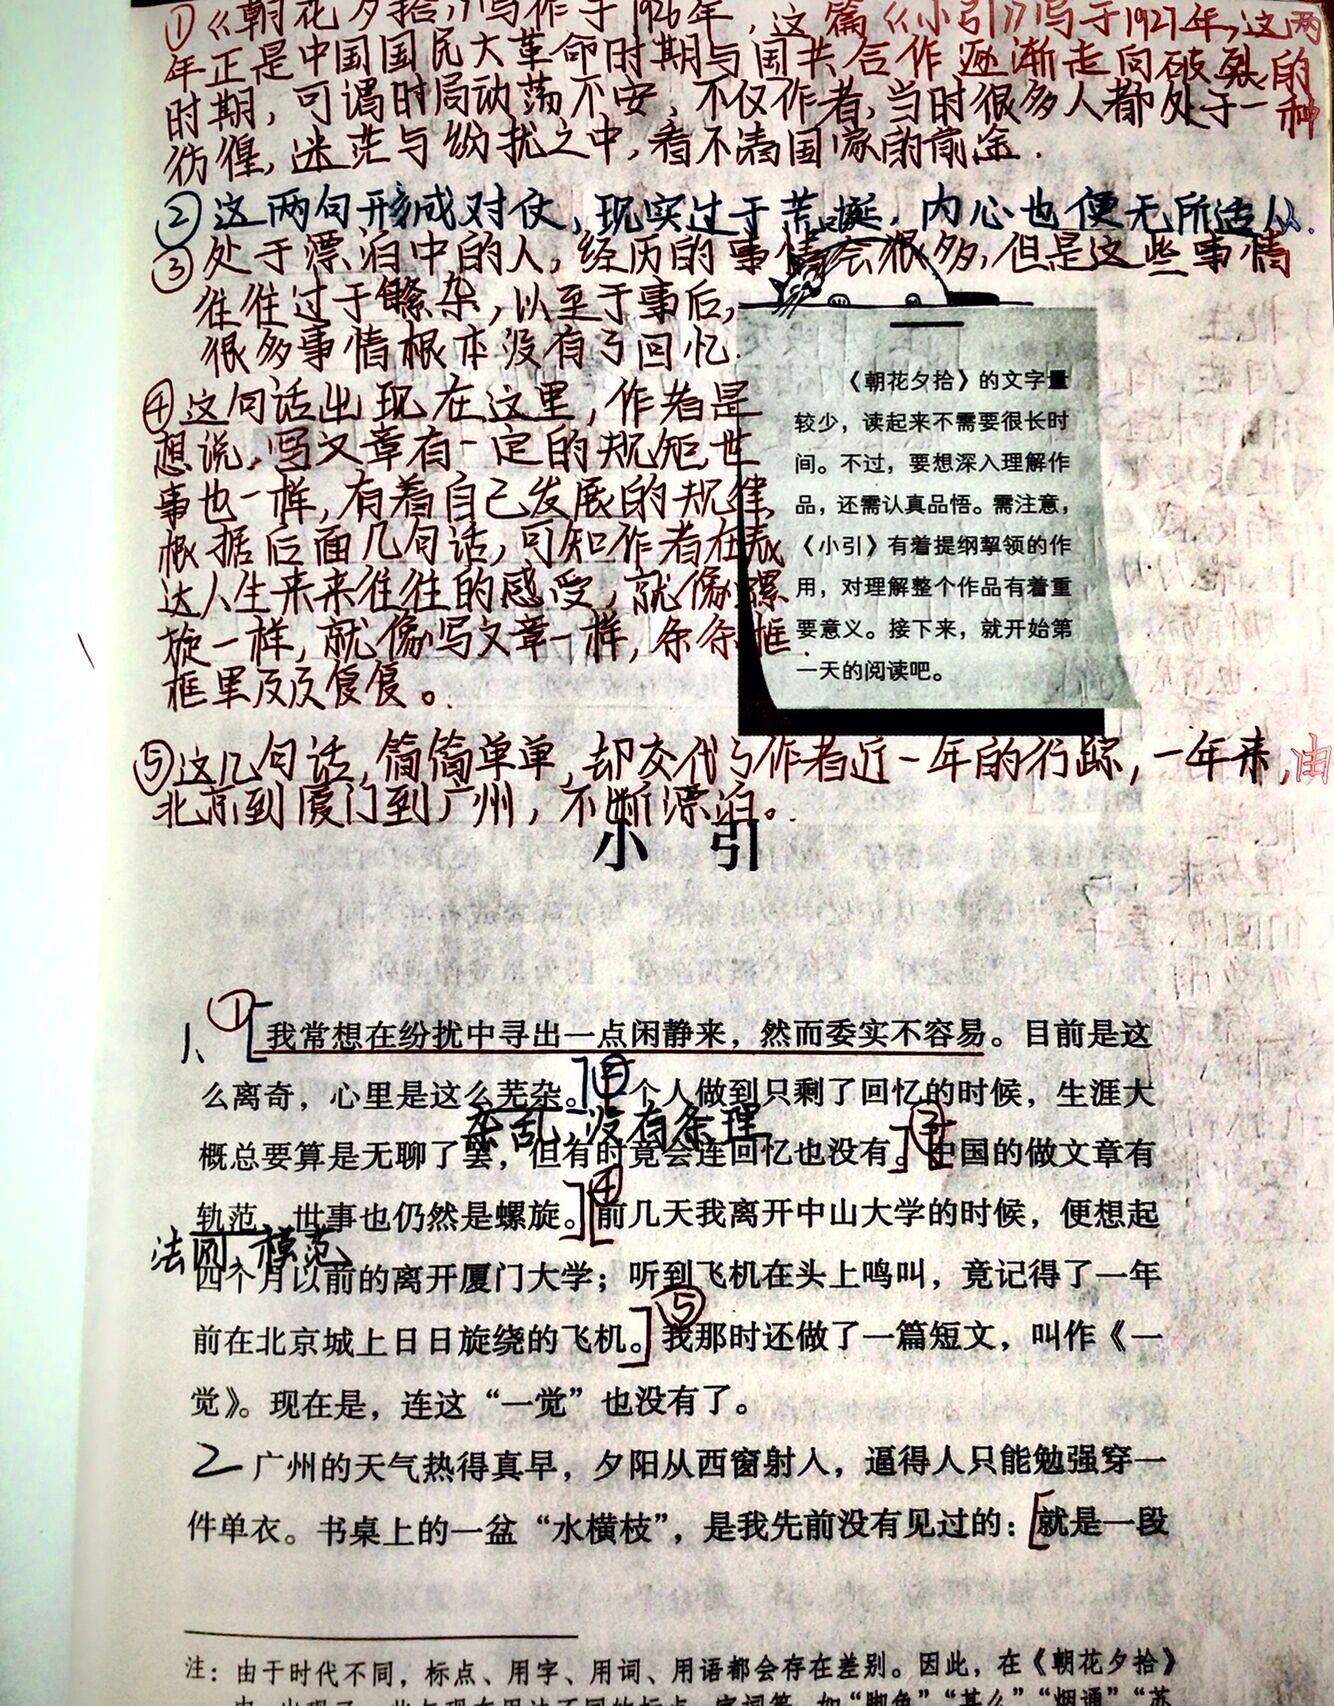 ①《朝花夕拾》写作于1926年,这篇《小引》写于1927年,这两
年正是中国国民大革命时期与国共合作逐渐走向破裂的
时期,可谓时局动荡不安,不仅作者,当时很多人都处于一种
彷徨,迷茫与纷扰之中,看不清国家的前途.
②这两句形成对仗,现实过于荒诞,内心也便无所适从.
③处于漂泊中的人,经历的事情会很多,但是这些事情
往往过于繁杂,以至于事后,
很多事情根本没有了回忆.
④这句话出现在这里,作者是
想说,写文章有一定的规矩,世
事也一样,有着自己发展的规律,
根据后面几句话,可知作者在表
达人生来来往往的感受,就像螺
旋一样,就像写文章一样,条条框
框里反反复复。
《朝花夕拾》的文字量
较少，读起来不需要很长时
间。不过，要想深入理解作
品，还需认真品悟。需注意，
《小引》有着提纲挈领的作
用，对理解整个作品有着重
要意义。接下来，就开始第
一天的阅读吧。
⑤这几句话,简简单单,却交代了作者近一年的行踪,一年来,由
北京到厦门到广州,不断漂泊。
小 引
1、①[我常想在纷扰中寻出一点闲静来，然而委实不容易。目前是这
么离奇，心里是这么芜杂。]②一个人做到只剩了回忆的时候，生涯大
杂乱,没有条理
概总要算是无聊了罢，但有时竟会连回忆也没有。]③中国的做文章有
轨范，世事也仍然是螺旋。]④[前几天我离开中山大学的时候，便想起
法则,模范
四个月以前的离开厦门大学；听到飞机在头上鸣叫，竟记得了一年
前在北京城上日日旋绕的飞机。]⑤我那时还做了一篇短文，叫作《一
觉》。现在是，连这“一觉”也没有了。
2 广州的天气热得真早，夕阳从西窗射入，逼得人只能勉强穿一
件单衣。书桌上的一盆“水横枝”，是我先前没有见过的：[就是一段
注：由于时代不同，标点、用字、用词、用语都会存在差别。因此，在《朝花夕拾》